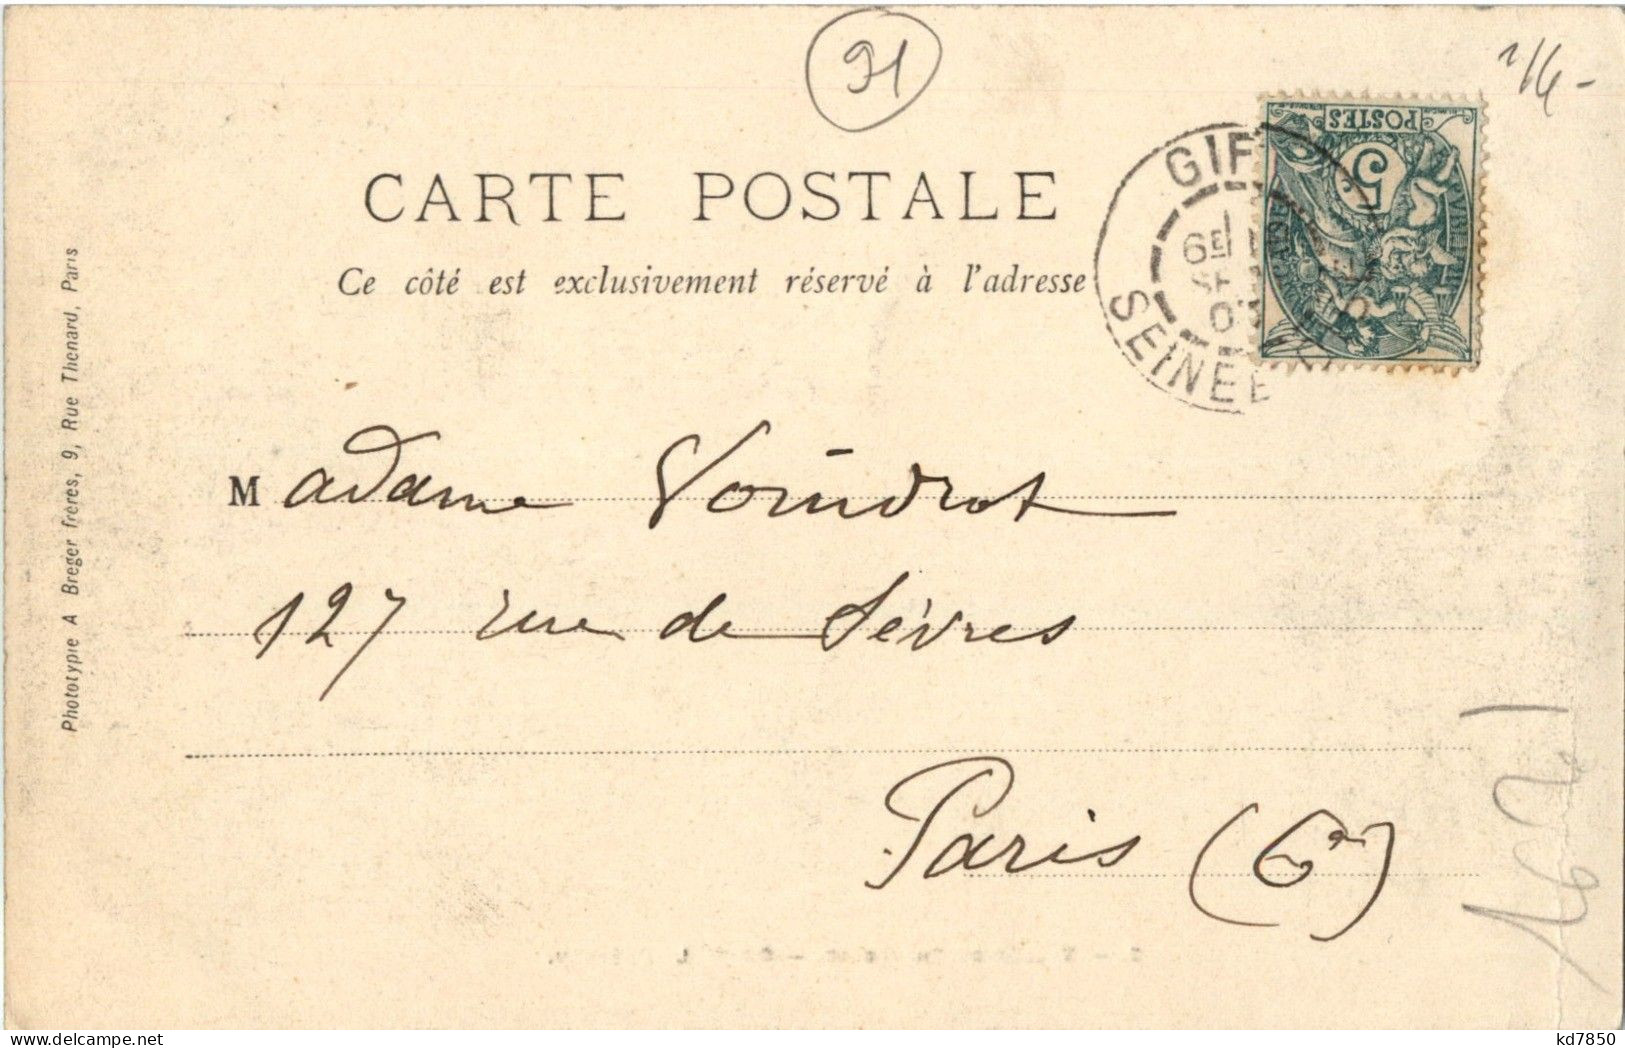 91
CARTE POSTALE
Ce côté est exclusivement réservé à l'adresse
GIF
6E
SEINE
POSTES
5
Phototypie A Breger frères, 9, Rue Thenard, Paris
Madame Voindrot
127 rue de Sèvres
Paris (6e)
1621
kd7850